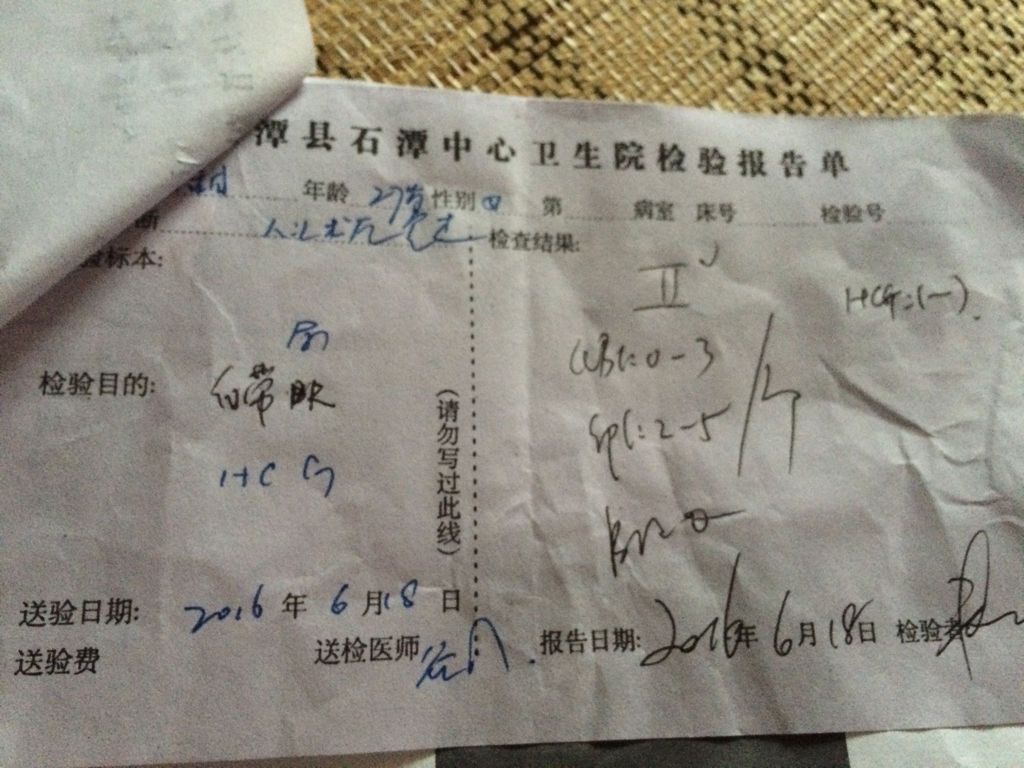 潭县石潭中心卫生院检验报告单
年龄 27岁 性别 女 第 病室 床号 检验号
断 人流术后 检查结果:
验标本:
II
HCG:(-).
检验目的: 白带
WBC:0-3
EPC:2-5 /个
HCG
(请勿写过此线)
送验日期: 2016 年 6 月 18 日
报告日期: 2016 年 6 月 18 日 检验者
送验费 送检医师